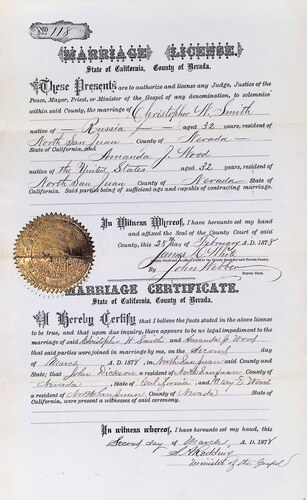 No 118
MARRIAGE LICENSE.
State of California, County of Nevada.
These Presents are to authorize and license any Judge, Justice of the
Peace, Mayor, Priest, or Minister of the Gospel of any denomination, to solemnize
within said County, the marriage of Christopher W. Smith
native of Russia aged 32 years, resident of
North San Juan County of Nevada
State of California, and Amanda J. Wood
native of the United States aged 32 years, resident of
North San Juan County of Nevada State of
California. Said parties being of sufficient age and capable of contracting marriage.
In Witness Whereof, I have hereunto set my hand
and affixed the Seal of the County Court of said
County, this 28th day of February A.D. 1878
By John Webber
MARRIAGE CERTIFICATE.
State of California, County of Nevada.
I Hereby Certify that I believe the facts stated in the above license
to be true, and that upon due inquiry, there appears to be no legal impediment to the
marriage of said Christopher W. Smith and Amanda J. Wood
that said parties were joined in marriage by me, on the Second day
of March A.D. 1878, in North San Juan said County and
State; that John Dickson a resident of North San Juan County of
Nevada, State of California and Mary E. Wood
a resident of North San Juan County of Nevada State of
California, were present as witnesses of said ceremony.
In witness whereof, I have hereunto set my hand, this
Second day of March A.D. 1878
Minister of the Gospel